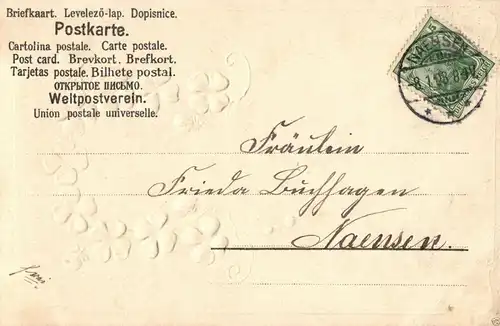 Briefkaart. Levelező-lap. Dopisnice.
Postkarte.
Cartolina postale. Carte postale.
Post card. Brevkort. Brefkort.
Tarjetas postale. Bilhete postal.
ОТКРЫТОЕ ПИСЬМО.
Weltpostverein.
Union postale universelle.
NAENSEN
5
Fräulein
Frieda Buchhagen
Naensen.